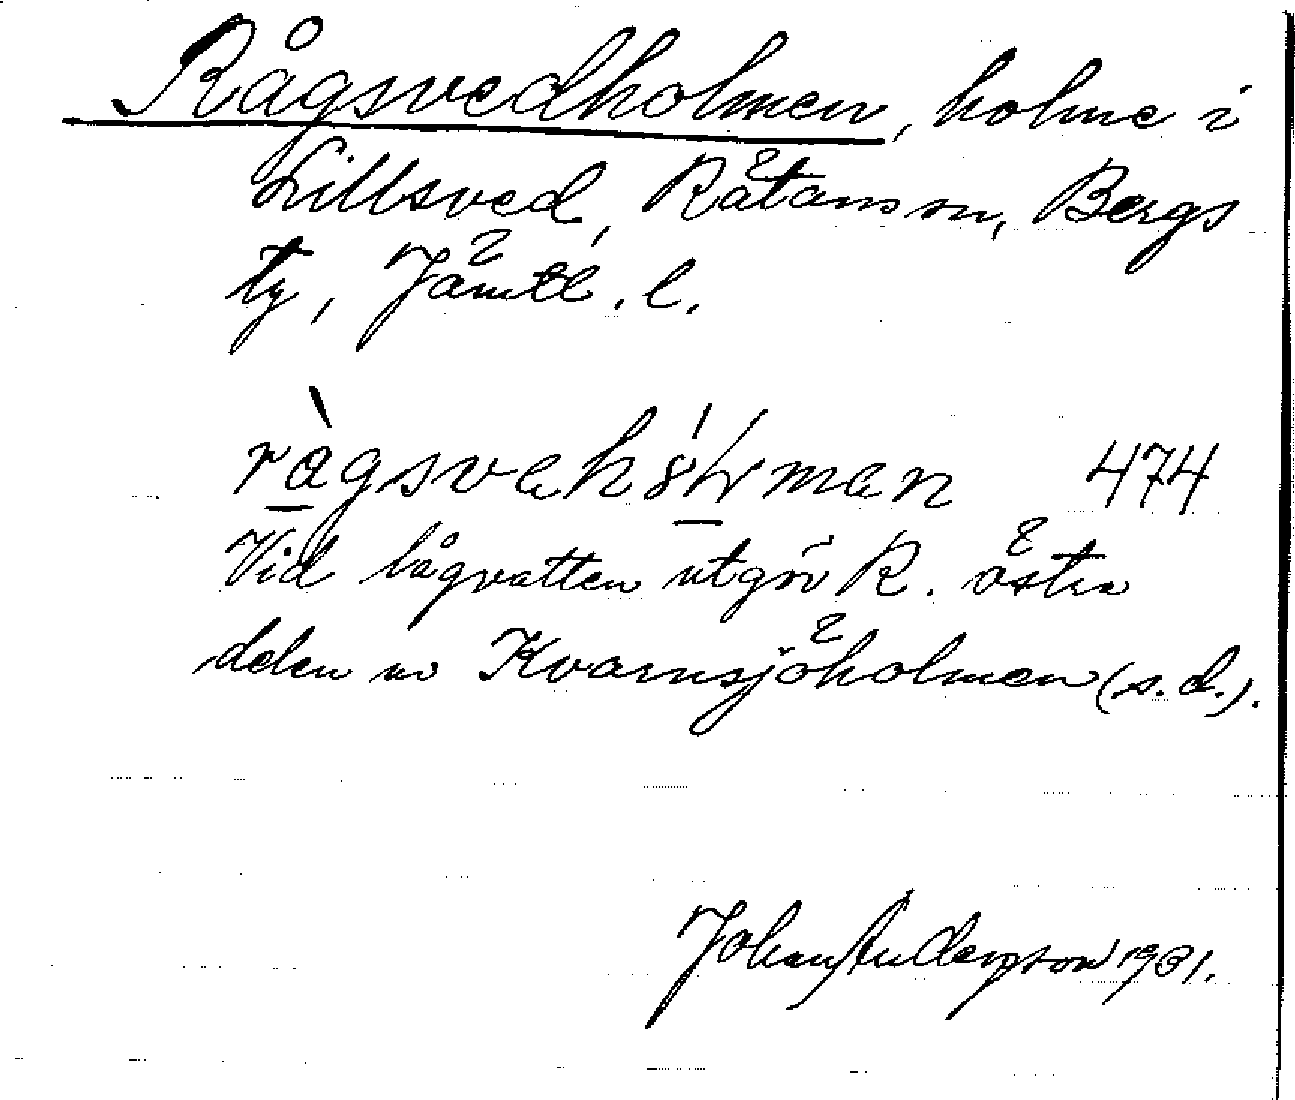 Rågsvedholmen, holme i
Lillsved, Råtans sn, Bergs
tg, Jämtl. l.
474
Vid lågvatten utgör R. östra
delen av Kvarnsjöholmen (s.d.).
Johan Anderson 1931.